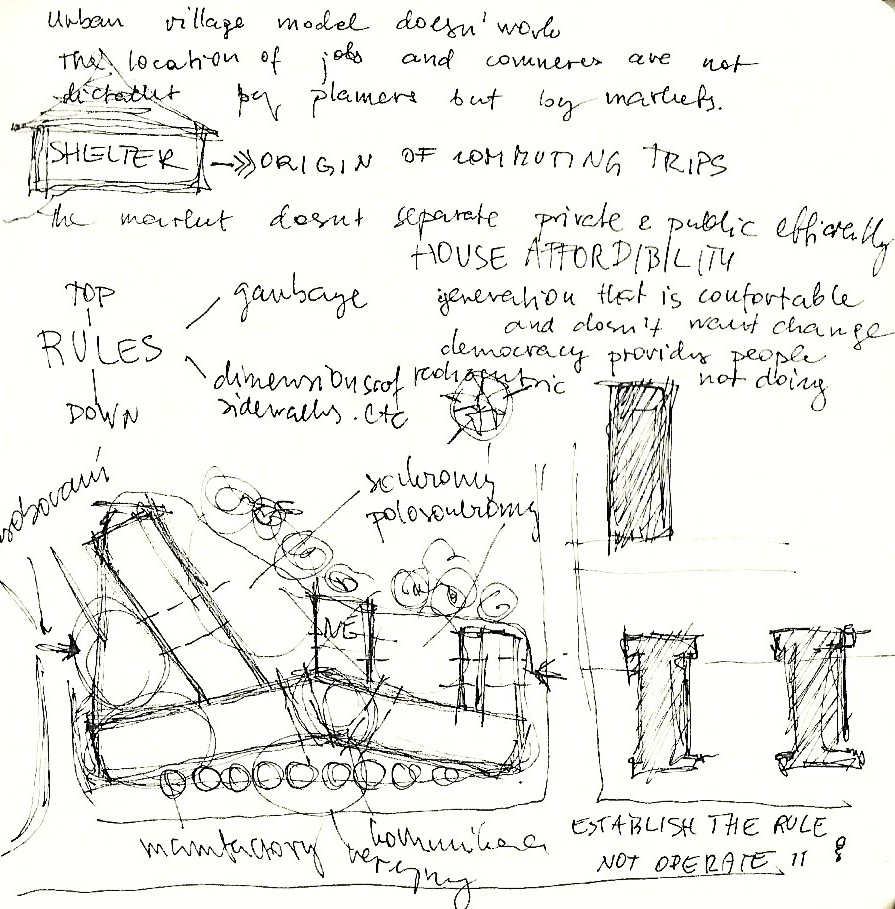 Urban village model doesn' work
The location of jobs and commerces are not
dictatllet by planners but by markets.
SHELTER → ORIGIN OF COMMUTING TRIPS
the market doesnt separate private & public efficiently
HOUSE AFFORDIBILITY
TOP
RULES
DOWN
garbage
dimensions of
sidewalks. etc
generation that is confortable
and doesn't want change
democracy provides people
not doing
radiocentric
soukromý
polosoukromý
NE
manufactory
komunikace
verejny
ESTABLISH THE RULE
NOT OPERATE !!